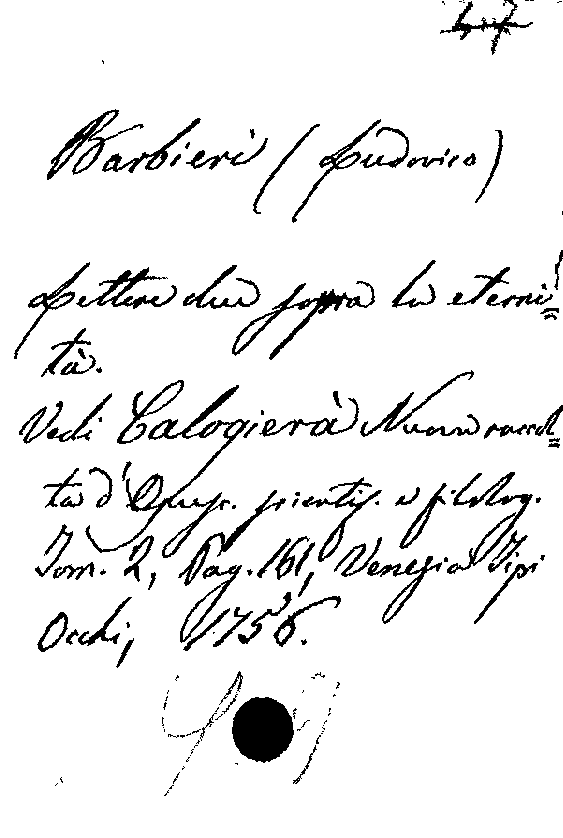 47
Barbieri (Ludovico)
Lettere due sopra la eterni=
tà.
Vedi Calogierà Nuova raccol=
ta d'Opusc. scientif. e filolog.
Tom. 2, Pag. 161, Venezia Tipi
Occhi, 1756.